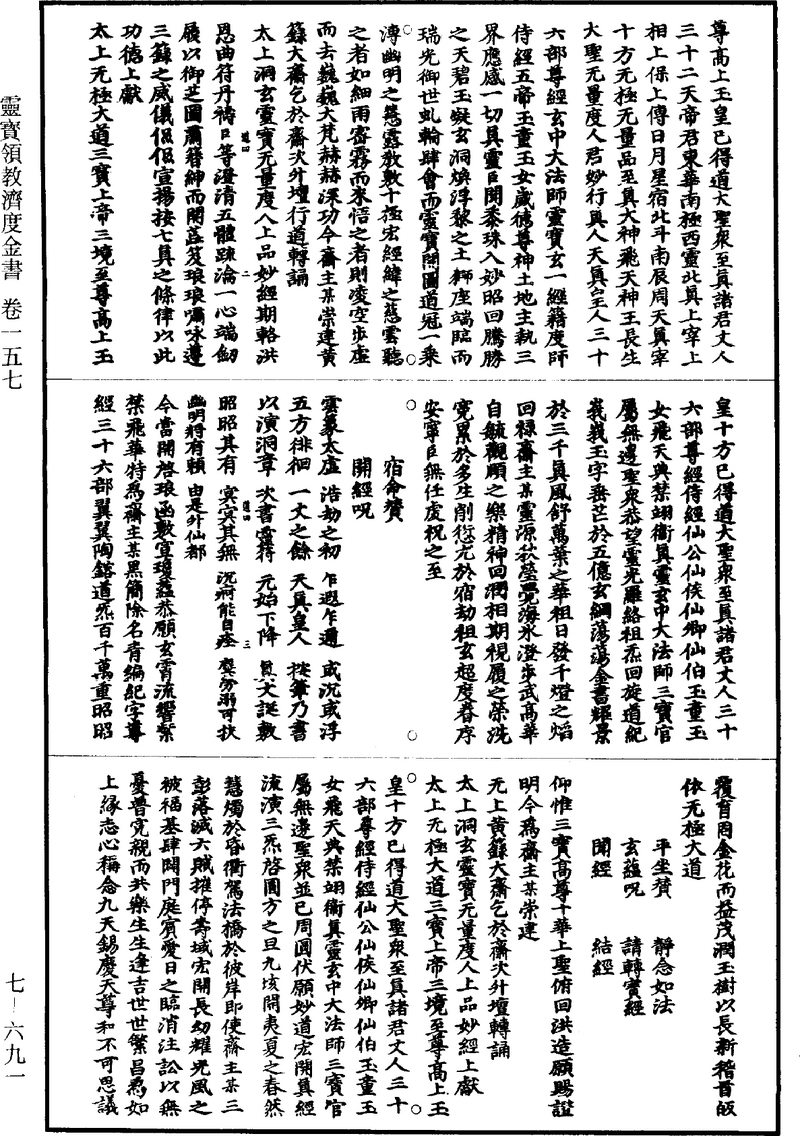 尊高上玉皇已得道大聖衆至眞諸君丈人
三十二天帝君東華南極西靈北眞上宰上
相上保上傳日月星宿北斗南辰周天眞宰
十方无極无量品至眞大神飛天神王長生
大聖无量度人君妙行眞人天眞皇人三十
六部尊經玄中大法師靈寶玄一經籍度師
侍經五帝玉童玉女威德尊神土地主執三
界應感一切眞靈臣聞黍珠入妙昭回騰勝
之天碧玉凝玄洞煥浮黎之土獅座端臨而
瑞光御世虬輪肆會而靈寶開圖道冠一乗
溥幽明之慈霑敎數十極宏經緯之慈雲聽
之者如細雨密霧而來悟之者則凌空步虛
而去巍巍大梵赫赫深功今齋主某崇建黄
籙大齋乞於齋次外壇行道轉誦
太上洞玄靈寶无量度人上品妙經期輅洪
恩曲符丹禱臣等澄清五體疏瀹一心端劒
履以御芝圖肅簪紳而開蕋笈琅琅嘯咏遵
三籙之威儀侃侃宣揚按七眞之條律以此
功德上獻
太上无極大道三寶上帝三境至尊高上玉
皇十方已得道大聖衆至眞諸君丈人三十
六部尊經侍經仙公仙侯仙卿仙伯玉童玉
女飛天典禁翊衞眞靈玄中大法師三寶官
屬無邊聖衆恭望靈光羅絡祖炁回旋道紀
峩峩玉字垂芒於五億玄綱蕩蕩金書耀景
於三千眞風舒萬葉之華祖日發千燈之焰
回祿齋主某靈源秋瑩覺海氷澄步武高華
自毓觀頤之樂精神回潤相期視履之榮洗
寃累於多生削愆尤於宿劫祖玄超度眷序
安寧臣無任虔祝之至
宿命贊
開經呪
雲篆太虛　浩劫之初　乍遐乍邇　或沉或浮
五方徘徊　一丈之餘　天眞皇人　按筆乃書
以演洞章　次書靈符　元始下降　眞文誕敷
昭昭其有　冥冥其無　沉痾能自痊　塵勞溺可扶
幽明將有賴　由是升仙都
今當開啓琅函敷宣瓊蘊恭願玄霄流響紫
禁飛華特爲齋主某黑簡除名青編紀字尊
經三十六部翼翼陶鎔道炁百千萬重昭昭
覆育罔金花而益茂潤玉樹以長新稽首皈
依无極大道
平坐贊　靜念如法
玄蘊呪　請轉寶經
聞經　結經
仰惟三寶高尊十華上聖俯回洪造願賜證
明今爲齋主某崇建
无上黄籙大齋乞於齋次升壇轉誦
太上洞玄靈寶无量度人上品妙經上獻
太上无極大道三寶上帝三境至尊高上玉
皇十方已得道大聖衆至眞諸君丈人三十
六部尊經侍經仙公仙侯仙卿仙伯玉童玉
女飛天典禁翊衞眞靈玄中大法師三寶官
屬無邊聖衆並已周圓伏願妙道宏開眞經
流演三炁啓圓方之旦九垓開夷夏之春然
慧燭於昏衢駕法橋於彼岸即使齋主某三
彭落滅六賊摧停壽域宏開長幼耀光風之
被福基肆闢門庭賓愛日之臨消注訟以無
憂普寃親而共樂生生逢吉世世繁昌爲如
上緣志心稱念九天錫慶天尊和不可思議
靈寶領教濟度金書　卷一五七
七—六九一